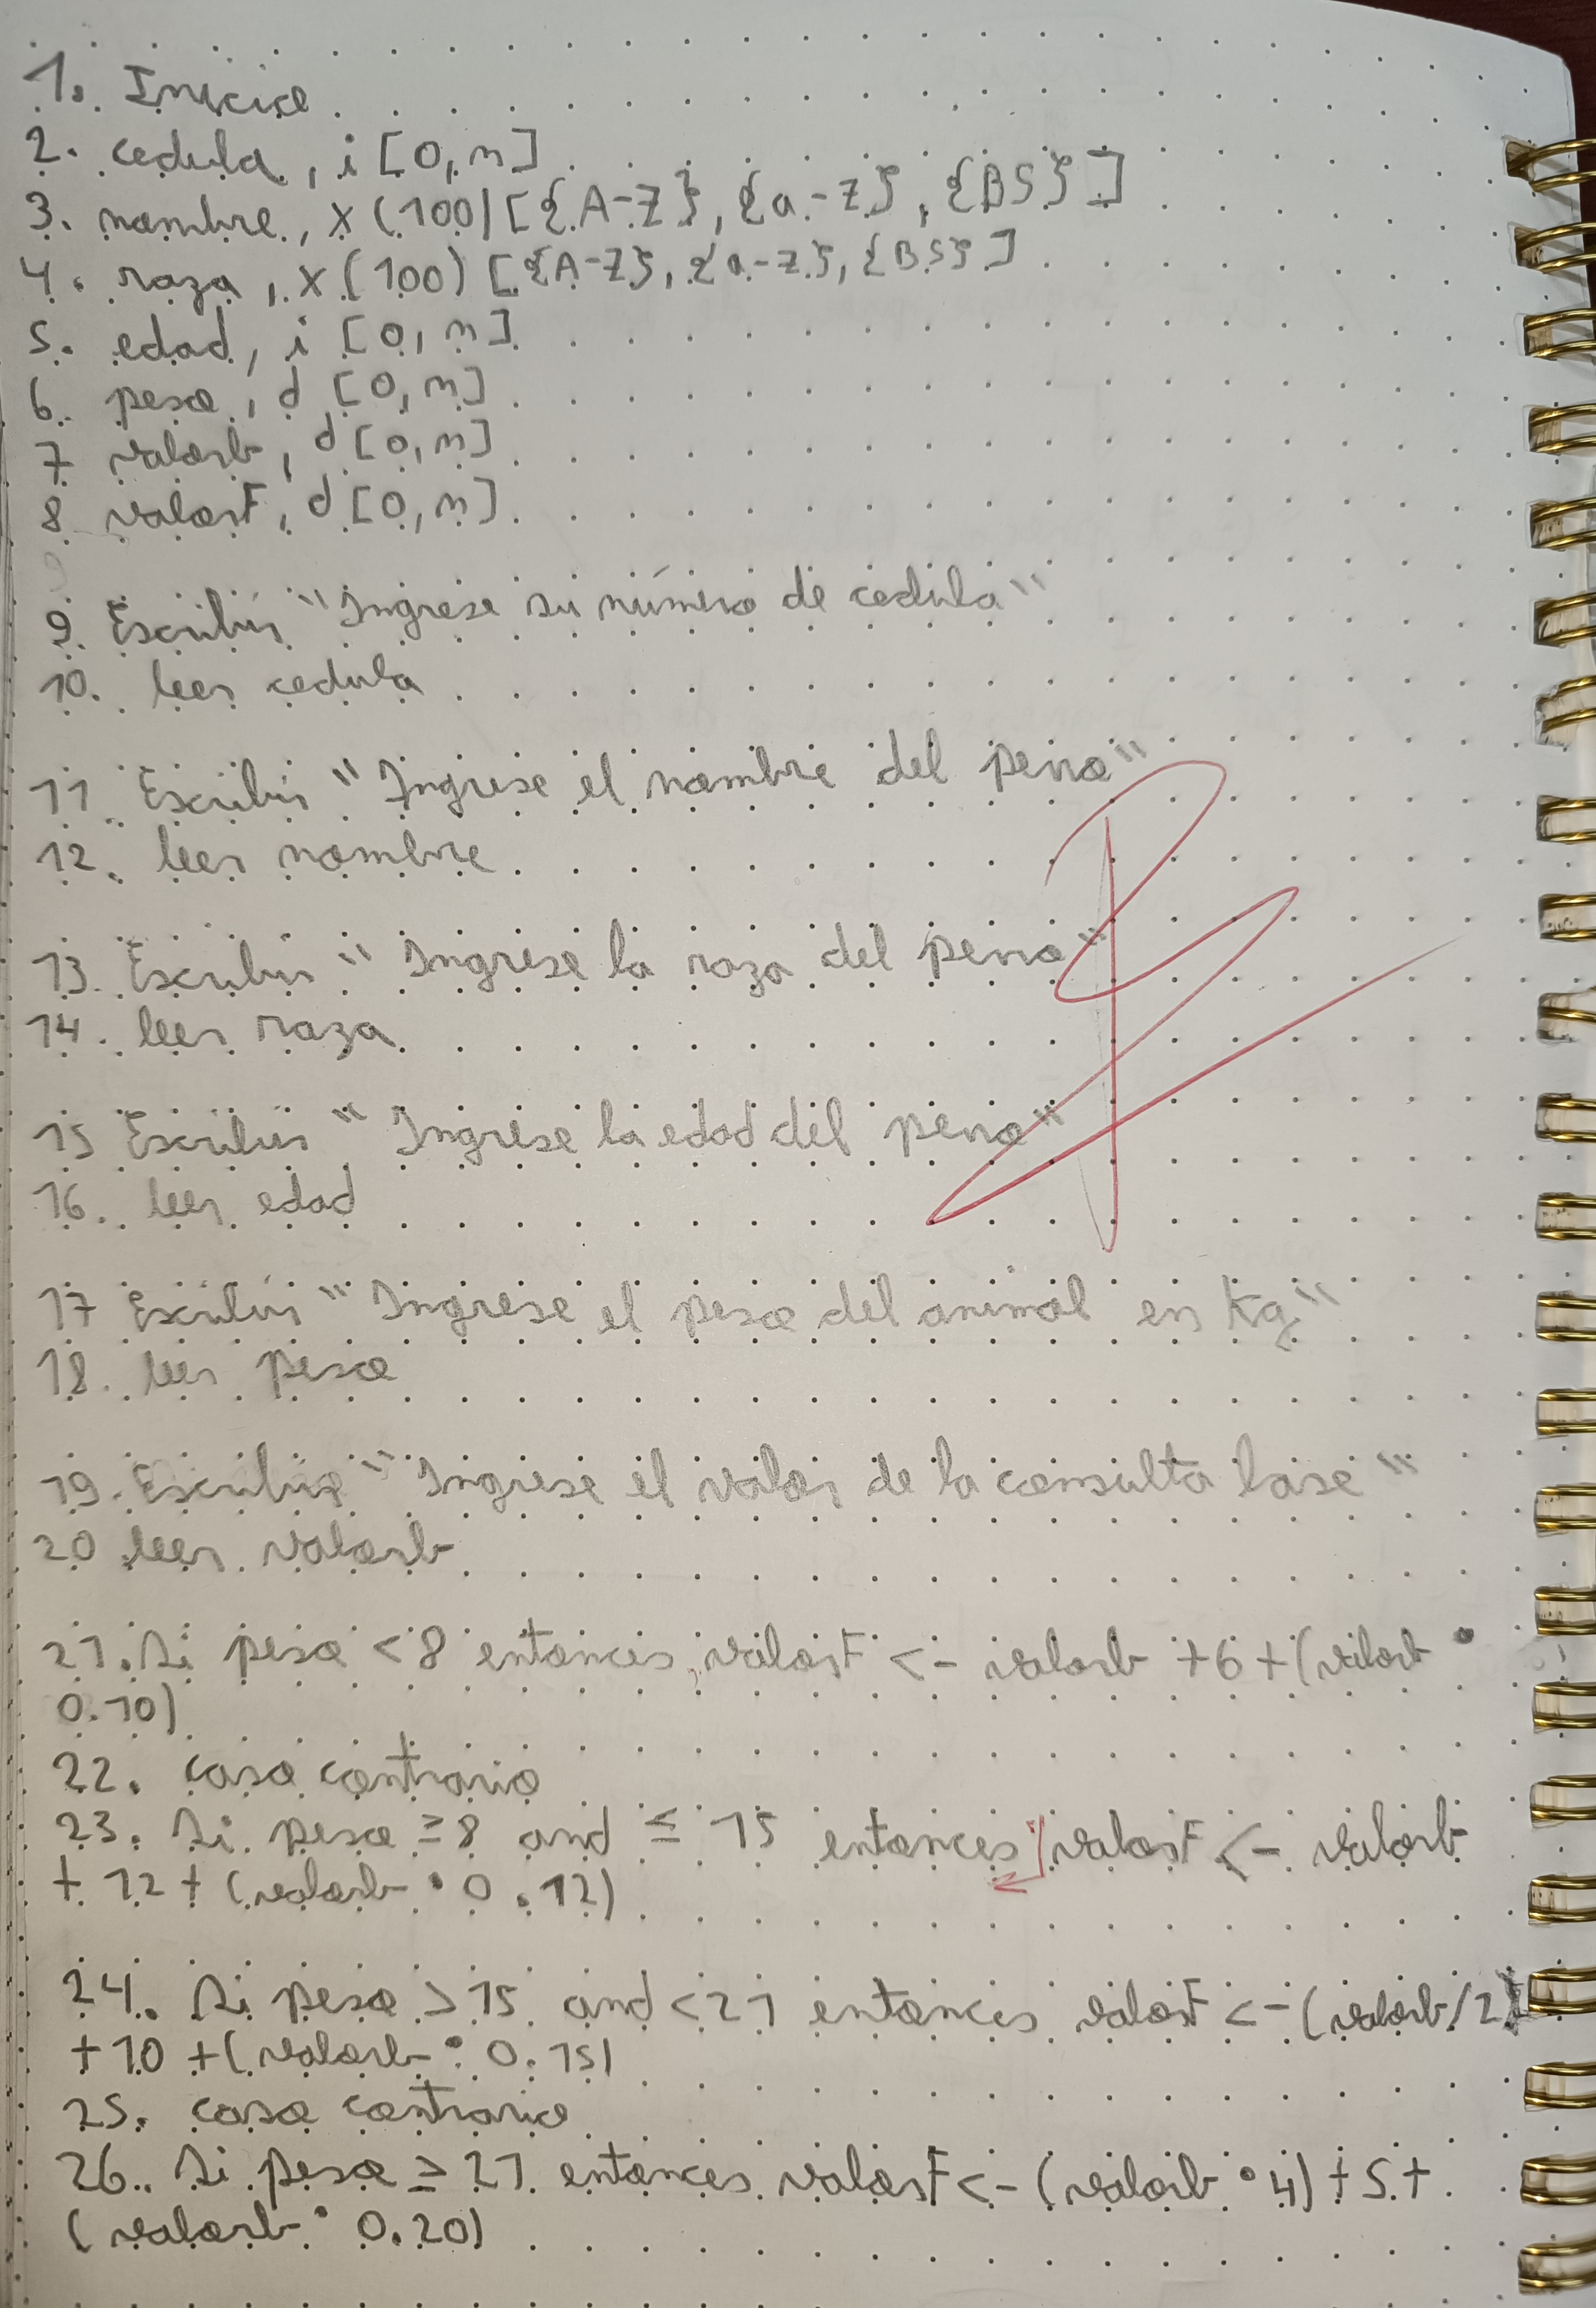 1. Inicio
2. cedula, i [0, n]
3. nombre, x (100) [{A-Z}, {a-z}, {BS}]
4. raza, x (100) [{A-Z}, {a-z}, {BS}]
5. edad, i [0, n]
6. peso, d [0, n]
7 valorb, d [0, n]
8 valorF, d [0, n]
9. Escribir "Ingrese su número de cedula"
10. leer cedula
11. Escribir "Ingrese el nombre del perro"
12. leer nombre
13. Escribir "Ingrese la raza del perro"
14. leer raza
15 Escribir "Ingrese la edad del perro"
16. leer edad
17 Escribir "Ingrese el peso del animal en kg"
18. leer peso
19. Escribir "Ingrese el valor de la consulta base"
20 leer valorb
21. Si peso < 8 entonces, valorF <- valorb + 6 + (valorb •
0.10)
22. caso contrario
23. Si peso ≥ 8 and ≤ 15 entonces valorF <- valorb
+ 12 + (valorb • 0.12)
24. Si peso > 15 and < 21 entonces valorF <- (valorb/2)
+ 10 + (valorb • 0.15)
25. caso contrario
26. Si peso ≥ 21 entonces valorF <- (valorb • 4) + 5 +
(valorb • 0.20)